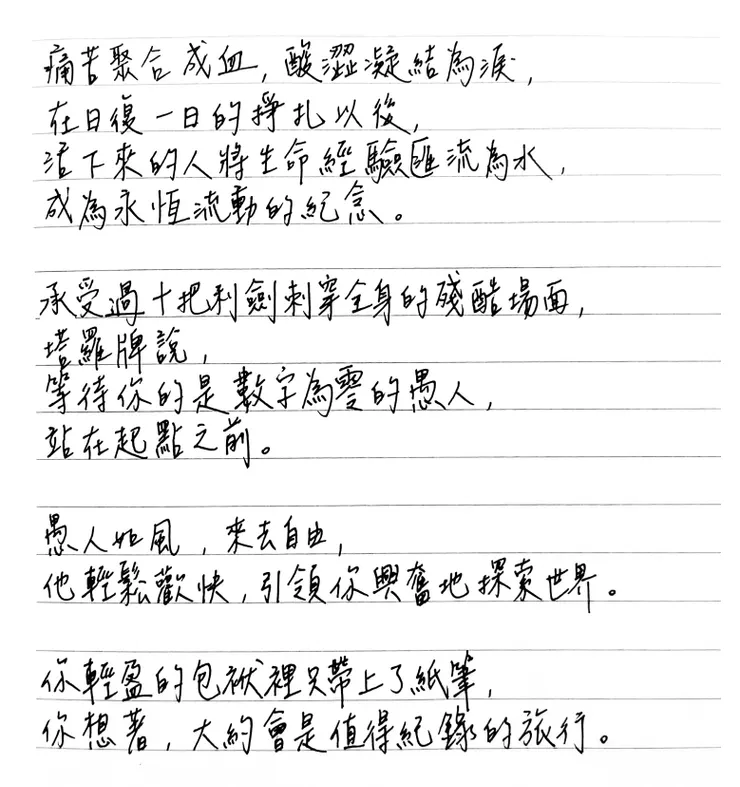 痛苦聚合成血，酸澀凝結為淚，
在日復一日的掙扎以後，
活下來的人將生命經驗匯流為水，
成為永恆流動的紀念。
承受過十把利劍刺穿全身的殘酷場面，
塔羅牌說，
等待你的是數字為零的愚人，
站在起點之前。
愚人如風，來去自由，
他輕鬆歡快，引領你興奮地探索世界。
你輕盈的包袱裡只帶上了紙筆，
你想著，大約會是值得紀錄的旅行。